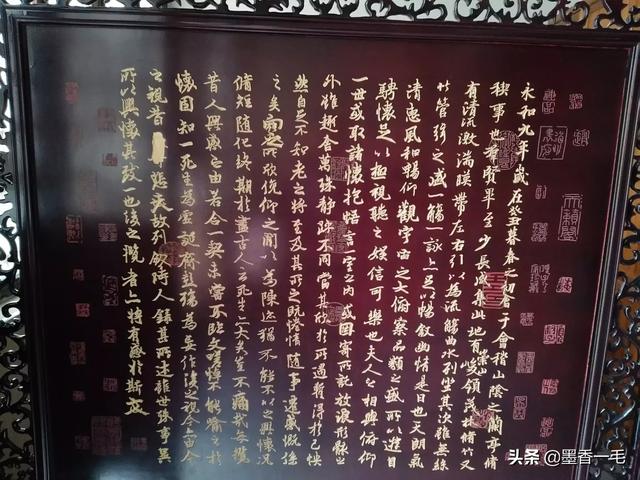 永和九年歲在癸丑暮春之初會于會稽山陰之蘭亭脩
禊事也群賢畢至少長咸集此地有崇山峻領茂林脩竹又
有清流激湍暎帶左右引以為流觴曲水列坐其次雖無絲
竹管弦之盛一觴一詠亦足以暢敘幽情是日也天朗氣
清惠風和暢仰觀宇宙之大俯察品類之盛所以遊目
騁懷足以極視聽之娛信可樂也夫人之相與俯仰
一世或取諸懷抱悟言一室之內或因寄所託放浪形骸之
外雖趣舍萬殊靜躁不同當其欣於所遇蹔得於己怏
然自足不知老之將至及其所之既惓情隨事遷感慨係
之矣向之所欣俛仰之閒以為陳迹猶不能不以之興懷況
脩短隨化終期於盡古人云死生亦大矣豈不痛哉每攬
昔人興感之由若合一契未嘗不臨文嗟悼不能喻之於
懷固知一死生為虛誕齊彭殤為妄作後之視今亦由今
之視昔悲夫故列敘時人錄其所述雖世殊事異
所以興懷其致一也後之攬者亦將有感於斯文
头条 @墨香一毛